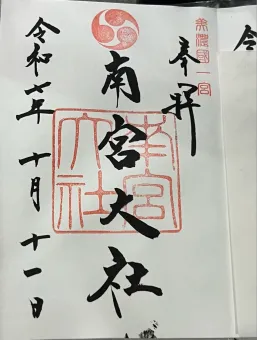 美濃國一宮
奉拝
南宮大社
南宮大社
令和七年十月十一日
令